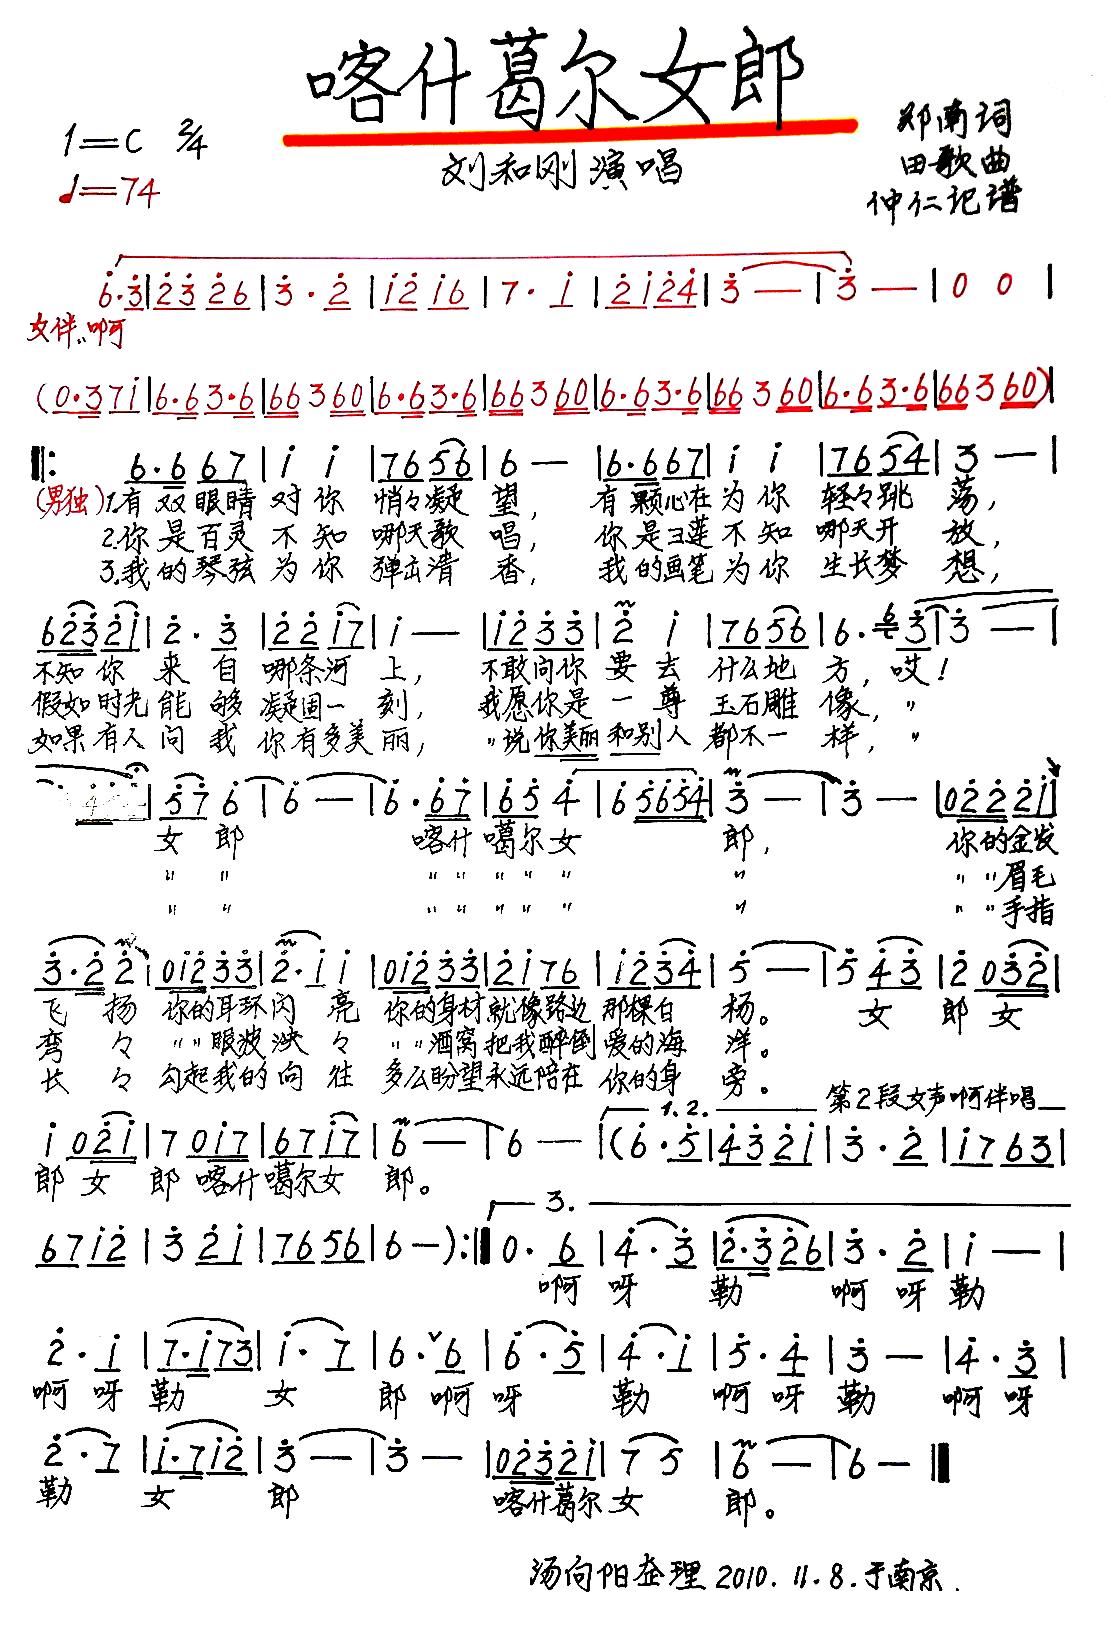 喀什葛尔女郎
1=C 2/4
♩=74
刘和刚演唱
郑南词
田歌曲
仲仁记谱
6·3|23 26|3·2|12 16|7·1|21 24|3—|3—|0 0|
女伴:啊
(0·3 71|6·6 3·6|66 3 60|6·6 3·6|66 3 60|6·6 3·6|66 3 60|6·6 3·6|66 3 60)|
‖: 6·6 67|1 1|76 56|6—|6·6 67|1 1|76 54|3—|
(男独)1.有双眼睛对你悄々凝望,有颗心在为你轻々跳荡,
2.你是百灵不知哪天歌唱,你是雪莲不知哪天开放,
3.我的琴弦为你弹出清香,我的画笔为你生长梦想,
623 21|2·3|22 17|1—|12 33|2 1|76 56|6· 6 3|3—|
不知你来自哪条河上,不敢问你要去什么地方,哎!
假如时光能够凝固一刻,我愿你是一尊玉石雕像,〃
如果有人问我你有多美丽,〃说你美丽和别人都不一样,〃
4|57 6|6—|6·67|65 4|6 5654|3—|3—|02 2 21|
女郎 喀什噶尔女郎,你的金发
〃 〃 〃 〃 〃 〃 〃 〃 〃 〃眉毛
〃 〃 〃 〃 〃 〃 〃 〃 〃 〃手指
3·2 2|012 33|2·1 1|012 33|21 76|12 34|5—|5 43|2 032|
飞扬你的耳环闪亮你的身材就像路边那棵白杨。女郎女
弯々〃〃眼波泱々〃〃酒窝把我醉倒爱的海洋。
长々勾起我的向往多么盼望永远陪在你的身旁。
1.2. 第2段女声啊伴唱
1 021|7 017|67 17|6—|6—|(6·5|43 21|3·2|17 63|
郎女郎喀什噶尔女郎。
3.
67 12|3 21|76 56|6—):‖0·6|4·3|2·3 26|3·2|1—|
啊呀勒啊呀勒
2·1|7·1 73|1·7|6·ˇ6|6·5|4·1|5·4|3—|4·3|
啊呀勒女郎啊呀勒啊呀勒啊呀
2·7|1·7 12|3—|3—|023 21|7 5|6—|6—‖
勒女郎喀什葛尔女郎。
汤向阳整理2010.11.8.于南京.